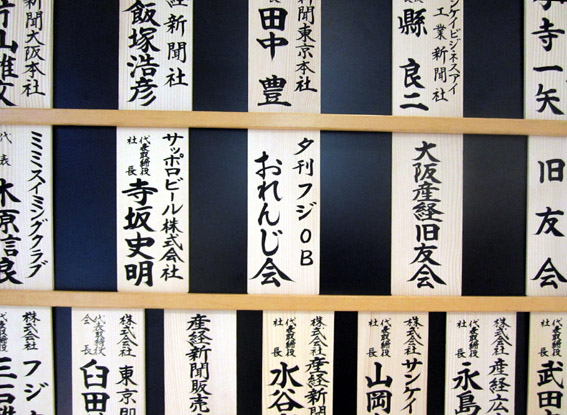 寺一矢
ンケイビジネスアイ
工業新聞社
縣 良二
新聞東京本社
田中 豊
経新聞社
飯塚浩彦
新聞大阪本社
片山雄文
旧友会
大阪産経旧友会
夕刊フジOB
おれんじ会
サッポロビール株式会社
代表取締役社長
寺坂史明
ミミスイミングクラブ
代表
木原信良
株式会社
代表取締役社長
武田
株式会社 産経広
代表取締役社長
永島
株式会社 サンケイ
代表取締役社長
山岡
株式会社産経新聞
代表取締役社長
水谷
産経新聞販売
株式会社 東京即
代表取締役会
臼田
株式会社 フジ
三石